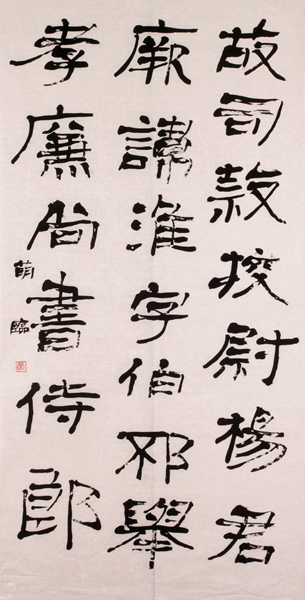 故司隸校尉楊君
厥諱淮字伯邳舉
孝廉尚書侍郎
萌臨